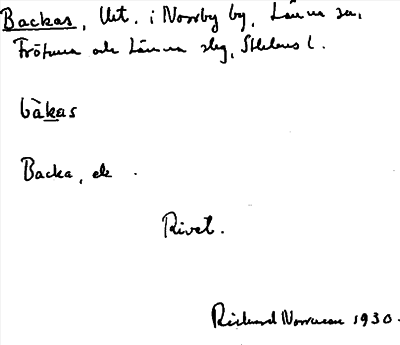 Backas, Utt. i Norrby by, Länna sn,
Frötuna och Länna slg, Sthlms l.
bàkas
Backa, ek
Rivet.
Rickard Norrman 1930.